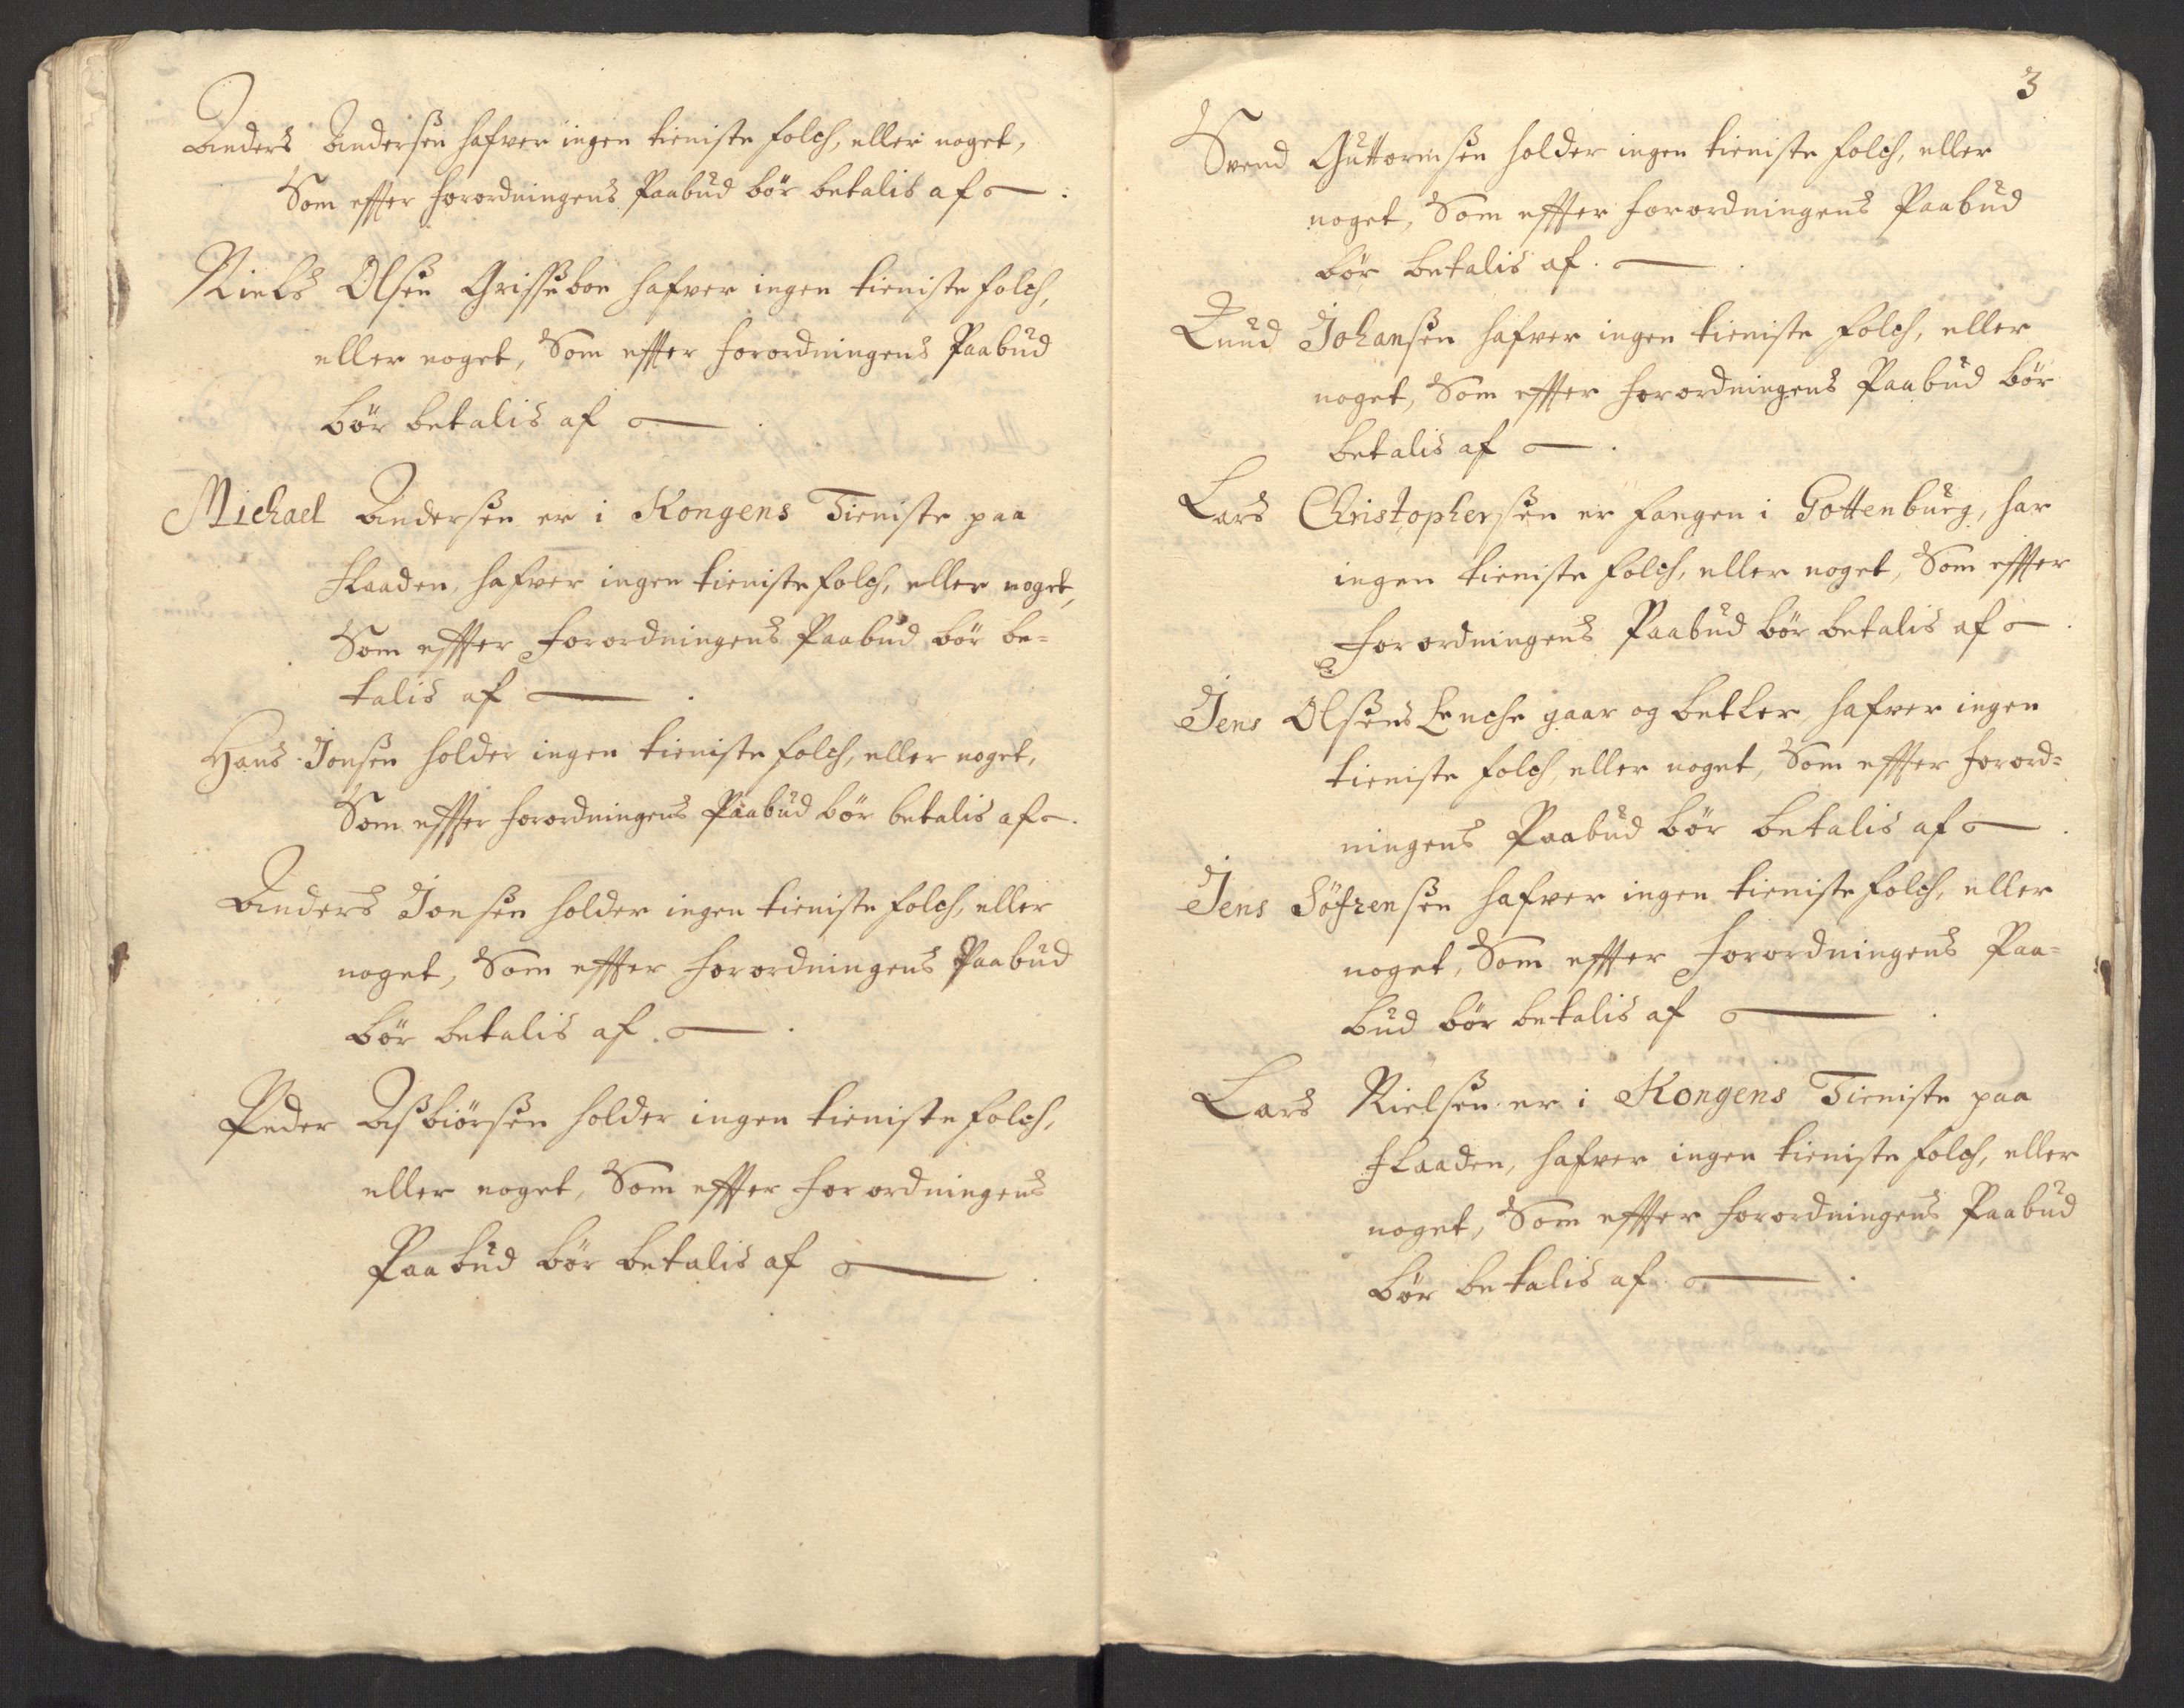 Anders Andersen hafver ingen tieniste folch, eller noget,
Som effter forordningens Paabud bör betalis af — :
Niels Olsen Grissebon hafver ingen tieniste folch,
eller noget, Som effter forordningens Paabud
bör betalis af — .
Michael Andersen er i Kongens Tieniste paa
Flaaden, hafver ingen tieniste folch, eller noget,
Som effter forordningens Paabud bör be=
talis af — .
Hans Jonsen holder ingen tieniste folch, eller noget,
Som effter forordningens Paabud bör betalis af — .
Anders Jonsen holder ingen tieniste folch, eller
noget, Som effter forordningens Paabud
bör betalis af — .
Peder Assbiörsen holder ingen tieniste folch,
eller noget, Som effter forordningens
Paabud bör betalis af — .
3
Svend Guttormsen holder ingen tieniste folch, eller
noget, Som effter forordningens Paabud
bör betalis af . — .
Knud Johansen hafver ingen tieniste folch, eller
noget, Som effter forordningens Paabud bör
betalis af — .
Lars Christophersen er fangen i Gottenburg, har
ingen tieniste folch, eller noget, Som effter
forordningens Paabud bör betalis af — .
Jens Olsens Enche gaar og betler, hafver ingen
tieniste folch, eller noget, Som effter forord=
ningens Paabud bör betalis af — .
Jens Söfrensen hafver ingen tieniste folch, eller
noget, Som effter forordningens Paa=
bud bör betalis af — .
Lars Nielsen er i Kongens Tieniste paa
Flaaden, hafver ingen tieniste folch, eller
noget, Som effter forordningens Paabud
bör betalis af — .